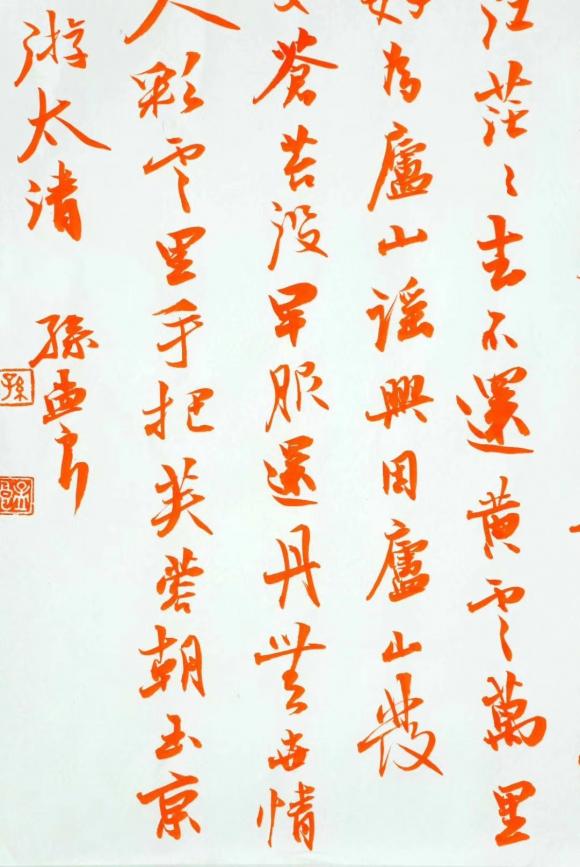 江茫々去不還黄雲萬里
好為廬山謠興因廬山發
蒼苔没早服還丹無世情
人彩雲里手把芙蓉朝玉京
游太清 孫孟
孫